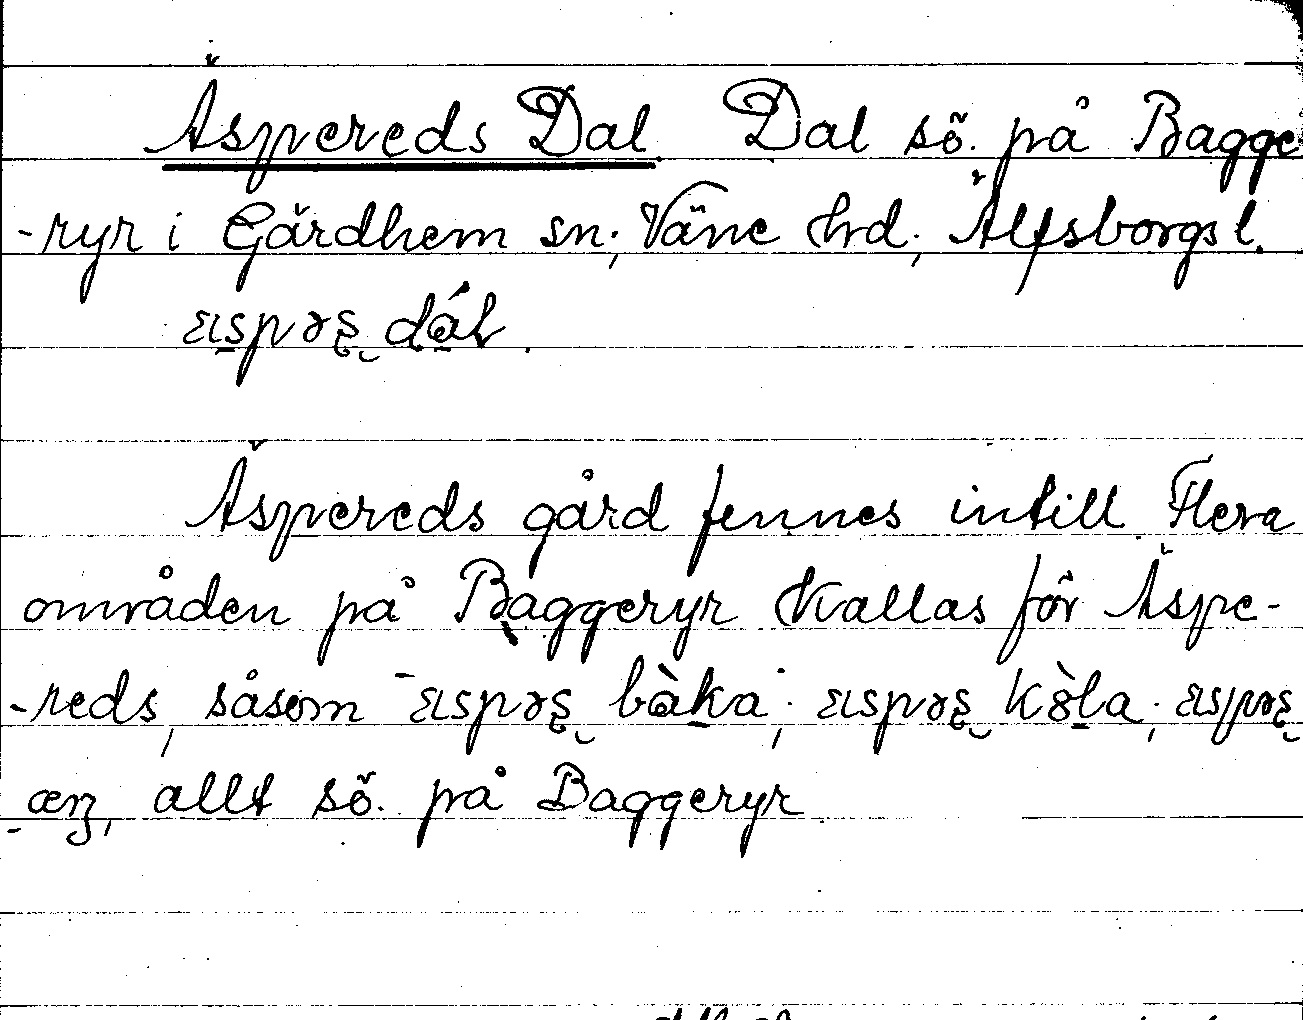 Äspereds Dal. Dal sö. på Bagge
-ryr i Gärdhem sn; Väne hrd; Älfsborgs l.
ɛıspɤʂ dál.
Äspereds gård fennes intill Flera
områden på Baggeryr kallas för Äspe-
-reds, såsom ɛıspɤʂ bàka; ɛıspɤʂ kòla; ɛıspɤʂ
æŋ, allt sö. på Baggeryr